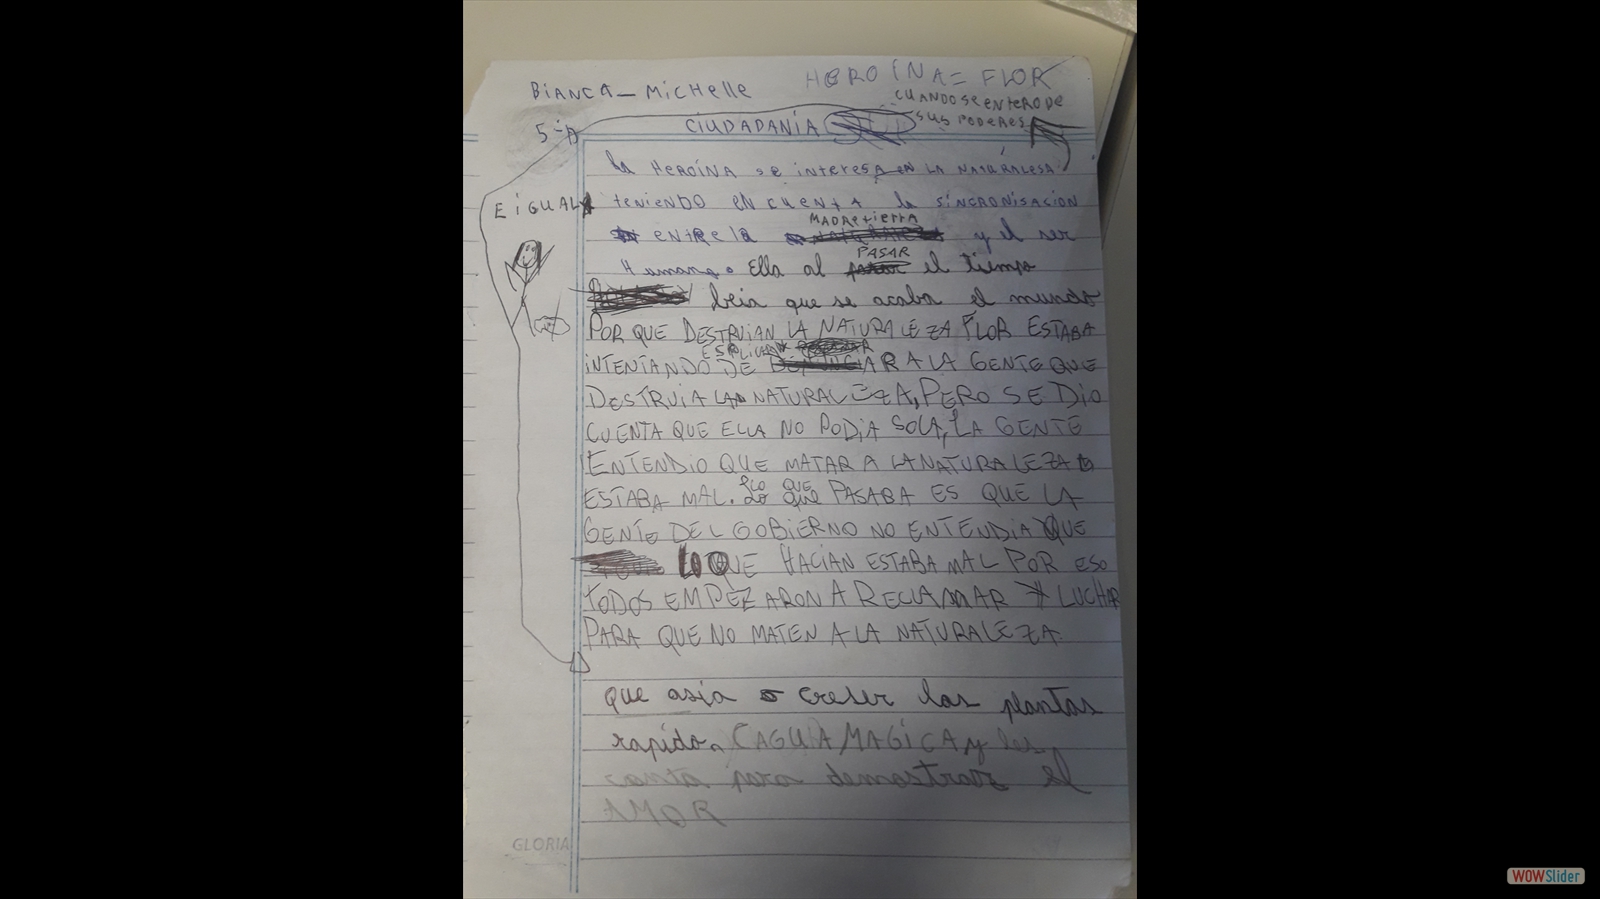 BiANCA - MicHelle
HEROÍNA = FLOR
CUANDO SE ENTERO DE
SUS PODERES
5-A
CIUDADANÍA
la HEROÍNA se interesa EN LA NATURALESA
E iGUAL
teniendo EN cuenta la SINCRONISACION
entre la MADRE tierra y el ser
Humano. Ella al PASAR el tiempo
beia que se acaba el mundo
POR QUE DESTRUIAN LA NATURALEZA FLOR ESTABA
INTENTANDO DE ESPLICAR A LA GENTE QUE
DESTRUIA LA NATURALEZA, PERO SE DIO
CUENTA QUE ELLA NO PODIA SOLA, LA GENTE
ENTENDIO QUE MATAR A LA NATURALEZA
ESTABA MAL. LO QUE PASABA ES QUE LA
GENTE DEL GOBIERNO NO ENTENDIA QUE
LO QUE HACIAN ESTABA MAL POR ESO
TODOS EMPEZARON A RECLAMAR Y LUCHAR
PARA QUE NO MATEN A LA NATURALEZA.
que asia creser las plantas
rapido. CAGUA MAGICA y les
canta para demostrar el
AMOR
GLORIA
WOWSlider